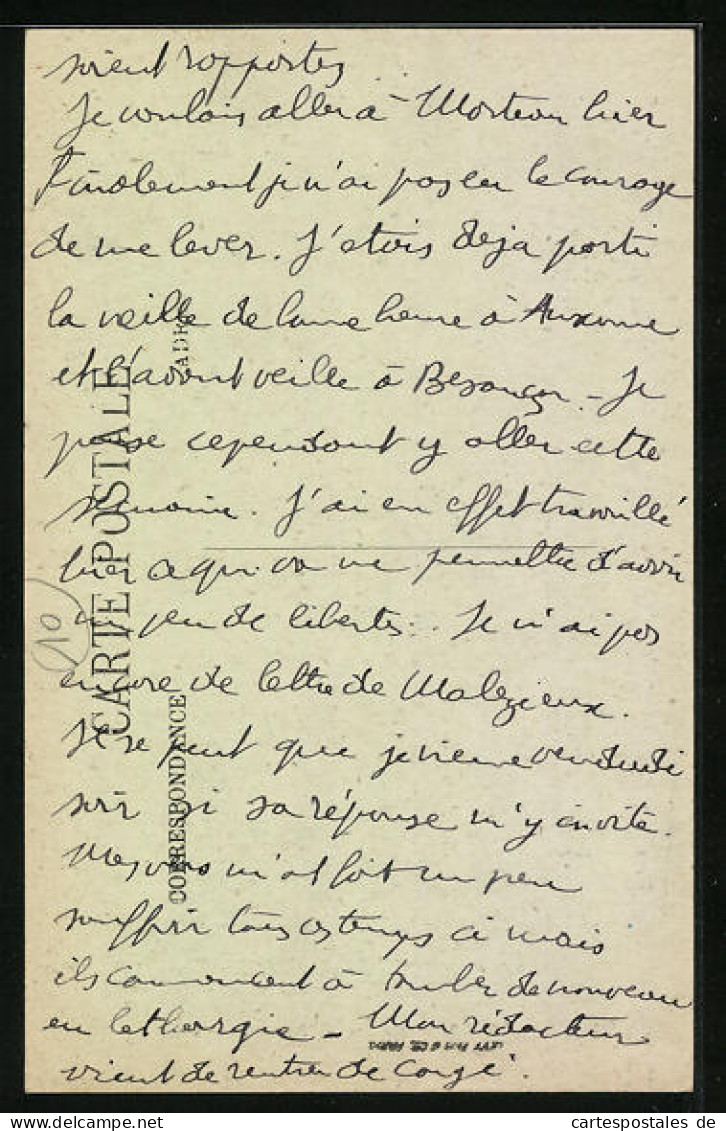 soient rapportés
Je voulais aller à Morteau hier
Finalement je n'ai pas eu le courage
de me lever. J'etais deja parti
la veille de bonne heure à Auxonne
et l'avant veille à Besançon - Je
pense cependant y aller cette
semaine. J'ai en effet travaillé
hier ce qui va me permettre d'avoir
un peu de libertés. Je n'ai pas
encore de lettre de Malezieux.
Il se peut que je vienne vendredi
soir si sa réponse m'y invite.
Mes vers m'ont fait un peu
souffrir tous ces temps ci mais
ils commencent à tomber de nouveau
en lethargie - Mon rédacteur
vient de rentrer de congé.
CARTE POSTALE
CORRESPONDANCE
(10)
cartespostales de